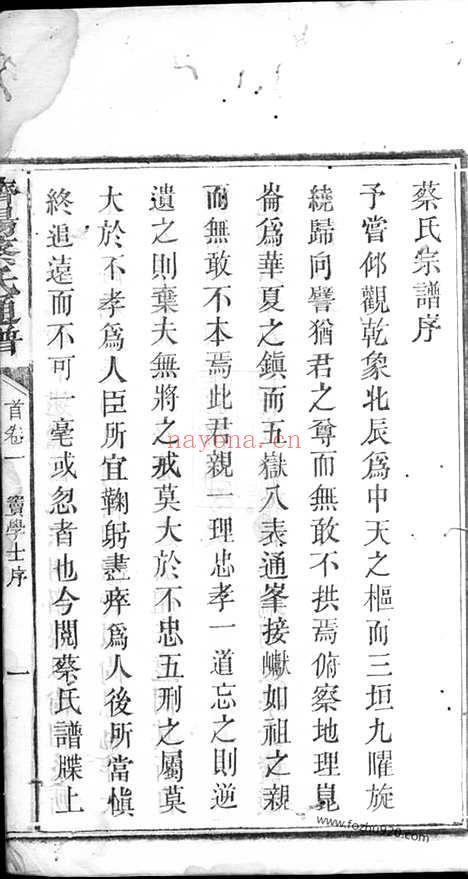 蔡氏宗譜序
予嘗仰觀乾象北辰爲中天之樞而三垣九曜旋
繞歸向譬猶君之尊而無敢不拱焉俯察地理崑
崙爲華夏之鎭而五嶽八表通峯接巘如祖之親
而無敢不本焉此君親一理忠孝一道忘之則逆
遺之則棄夫無將之戒莫大於不忠五刑之屬莫
大於不孝爲人臣所宜鞠躬盡瘁爲人後所當愼
終追遠而不可一毫或忽者也今閱蔡氏譜牒上
濟陽蔡氏通譜
首卷一
竇學士序
一
nayona.cn
www.fozhu920.com